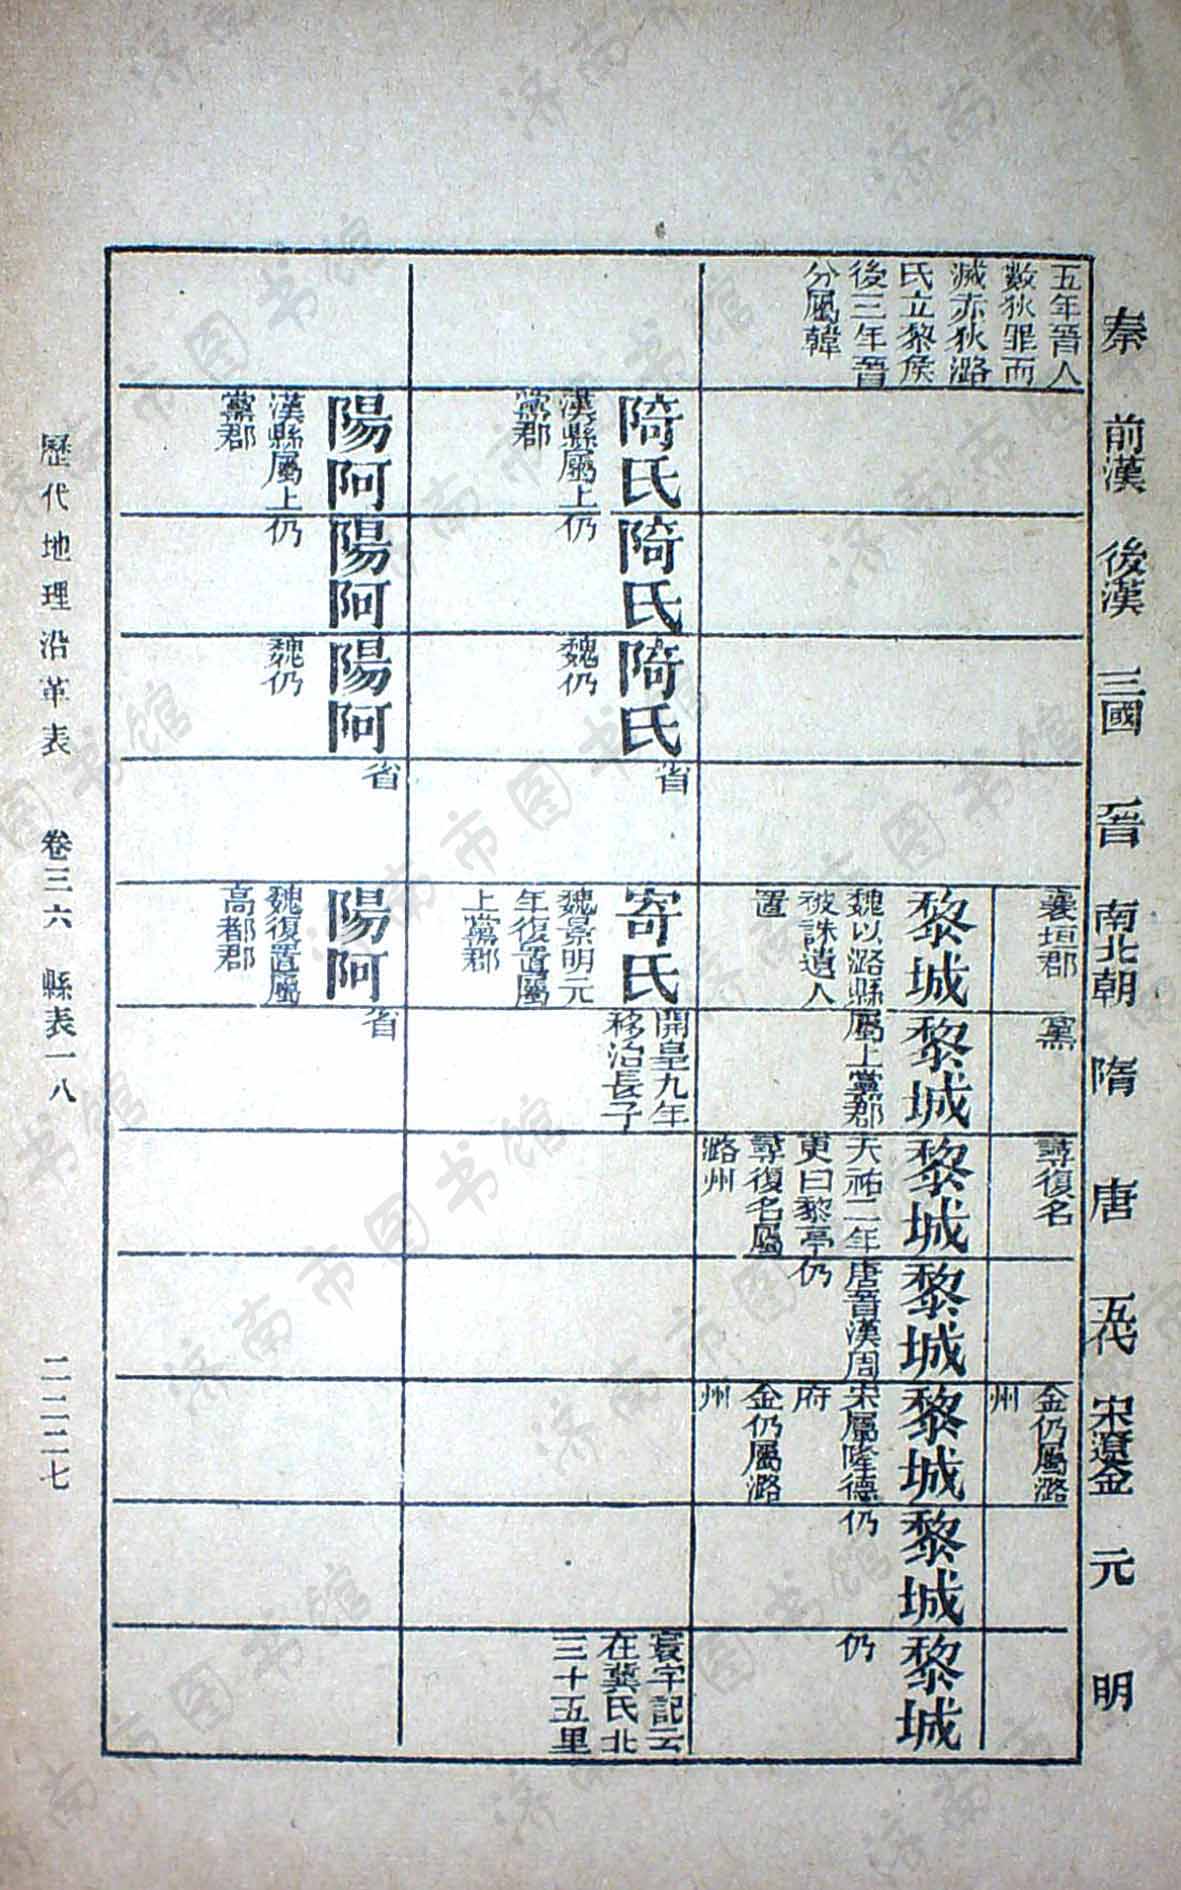 秦 前漢 後漢 三國 晉 南北朝 隋 唐 五代 宋遼金 元 明
五年晉人
數狄罪而
滅赤狄潞
氏立黎侯
後三年晉
分屬韓
襄垣郡
黨
尋復名
金仍屬潞
州
黎城
魏以潞縣
被誅遺人
置
黎城
屬上黨郡
黎城
天祐二年
更曰黎亭
尋復名屬
潞州
黎城
唐晉漢周
仍
黎城
宋屬隆德
府
金仍屬潞
州
黎城
仍
黎城
仍
陭氏
漢縣屬上
黨郡
陭氏
仍
陭氏
魏仍
省
寄氏
魏景明元
年復置屬
上黨郡
開皇九年
移治長子
寰宇記云
在冀氏北
三十五里
陽阿
漢縣屬上
黨郡
陽阿
仍
陽阿
魏仍
省
陽阿
魏復置屬
高都郡
省
歷代地理沿革表 卷三六 縣表一八 二二二七
济南市图书馆